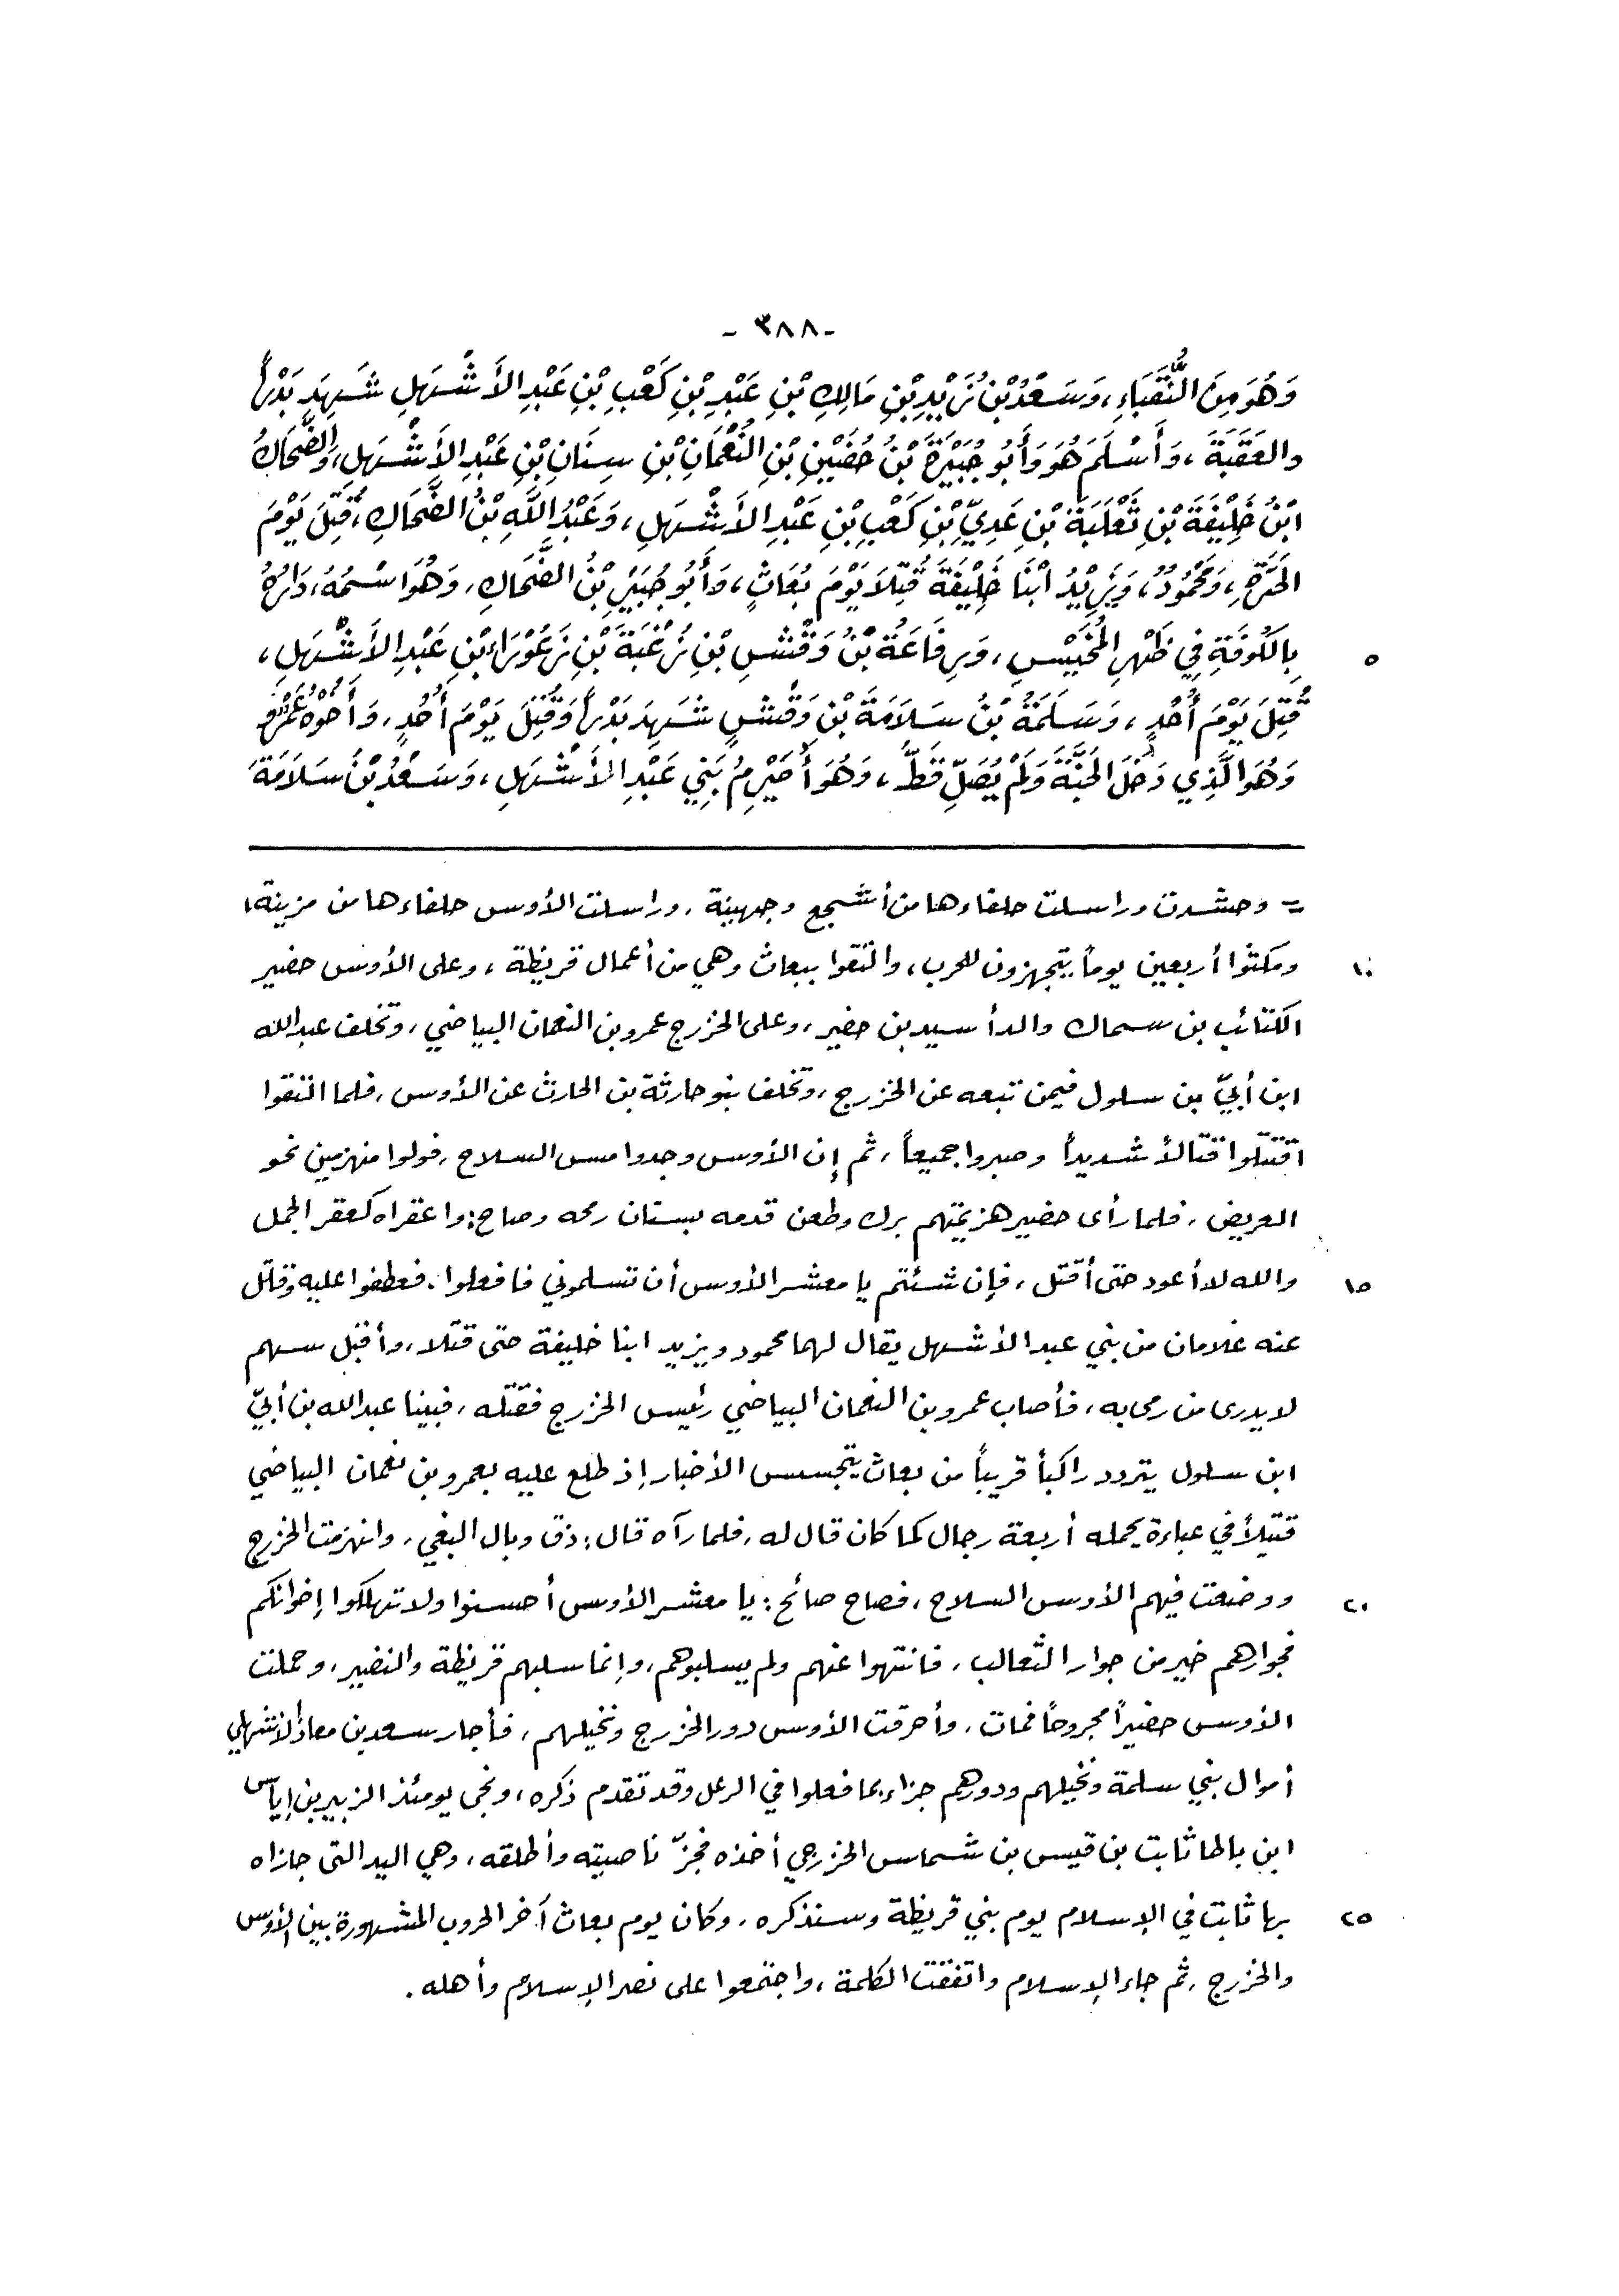 -٣٨٨-
وَهُوَ مِنَ النُّقَبَاءِ، وَسَعْدُ بْنُ زَيْدِ بْنِ مَالِكِ بْنِ عَبْدِ بْنِ كَعْبِ بْنِ عَبْدِ الأَشْهَلِ شَهِدَ بَدْراً
والعَقَبَةَ، وَأَسْلَمَ هُوَ وَأَبُو جُبَيْرَةَ بْنُ حُصَيْنِ بْنِ النُّعْمَانِ بْنِ سِنَانِ بْنِ عَبْدِ الأَشْهَلِ، وَالضَّحَّاكُ
ابْنُ خَلِيْفَةَ بْنِ ثَعْلَبَةَ بْنِ عَدِيِّ بْنِ كَعْبِ بْنِ عَبْدِ الأَشْهَلِ، وَعَبْدُ اللَّهِ بْنُ الضَّحَّاكِ، قُتِلَ يَوْمَ
الحَرَّةِ، وَمَحْمُودُ، وَيَزِيْدُ ابْنَا خَلِيْفَةَ قُتِلَا يَوْمَ بُعَاثٍ، وَأَبُو جُبَيْرِ بْنُ الضَّحَاكِ، وَهُوَ اسْمُهُ، دَارُهُ
٥ بِالكُوفَةِ فِي ظَهْرِ المُخَيِّسِ، وَرِفَاعَةُ بْنُ وَقْشِ بْنِ زُغْبَةَ بْنِ زَعُوْرَاءَ بْنِ عَبْدِ الأَشْهَلِ،
قُتِلَ يَوْمَ أُحُدٍ، وَسَلَمَةُ بْنُ سَلَامَةَ بْنِ وَقْشٍ شَهِدَ بَدْراً وَقُتِلَ يَوْمَ أُحُدٍ، وَأَخُوْهُ عَمْرُو
وَهُوَ الَّذِي دَخَلَ الجَنَّةَ وَلَمْ يُصَلِّ قَطُّ، وَهُوَ أُصَيْرِمُ بَنِي عَبْدِ الأَشْهَلِ، وَسَعْدُ بْنُ سَلَامَةَ
= وحشدت وراسلت حلفاءها من أشجع وجهينة، وراسلت الأوس حلفاءها من مزينة،
١٠ ومكثوا أربعين يوماً يتجهزون للحرب، والتقوا ببعاث وهي من أعمال قريظة، وعلى الأوس حضير
الكتائب بن سماك والد أسيد بن حضير، وعلى الخزرج عمرو بن النعمان البياضي، وتخلف عبد الله
ابن أبيّ بن سلول فيمن تبعه عن الخزرج، وتخلف بنو حارثة بن الحارث عن الأوس، فلما التقوا
اقتتلوا قتالاً شديداً وصبروا جميعاً، ثم إن الأوس وجدوا مس السلاح، فولوا منهزمين نحو
العريض، فلما رأى حضير هزيمتهم برك وطعن قدمه بسنان رمحه وصاح: وا عقراه كعقر الجمل
١٥ والله لا أعود حتى أقتل، فإن شئتم يا معشر الأوس أن تسلموني فافعلوا. فعطفوا عليه وقاتل
عنه غلامان من بني عبد الأشهل يقال لهما محمود ويزيد ابنا خليفة حتى قتلا، وأقبل سهم
لا يدرى من رمى به، فأصاب عمرو بن النعمان البياضي رئيس الخزرج فقتله، فبينا عبد الله بن أبيّ
ابن سلول يتردد راكباً قريباً من بعاث يتجسس الأخبار إذ طلع عليه بعمرو بن نعمان البياضي
قتيلاً في عباءة يحمله أربعة رجال كما كان قال له، فلما رآه قال: ذق وبال البغي، وانهزمت الخزرج
٢٠ ووضعت فيهم الأوس السلاح، فصاح صائح: يا معشر الأوس أحسنوا ولا تهلكوا إخوانكم
فجوارهم خير من جوار الثعالب، فانتهوا عنهم ولم يسلبوهم، وإنما سلبهم قريظة والنضير، وحملت
الأوس حضيراً مجروحاً فمات، وأحرقت الأوس دور الخزرج ونخيلهم، فأجار سعد بن معاذ الأشهلي
أموال بني سلمة ونخيلهم ودورهم جزاء بما فعلوا في الرعل وقد تقدم ذكره، ونجى يومئذ الزبير بن إياس
ابن باطا ثابت بن قيس بن شماس الخزرجي أخذه فجزّ ناصيته وأطلقه، وهي اليد التي جازاه
٢٥ بها ثابت في الإسلام يوم بني قريظة وسنذكره، وكان يوم بعاث آخر الحروب المشهورة بين الأوس
والخزرج، ثم جاء الإسلام واتفقت الكلمة، واجتمعوا على نصر الإسلام وأهله.